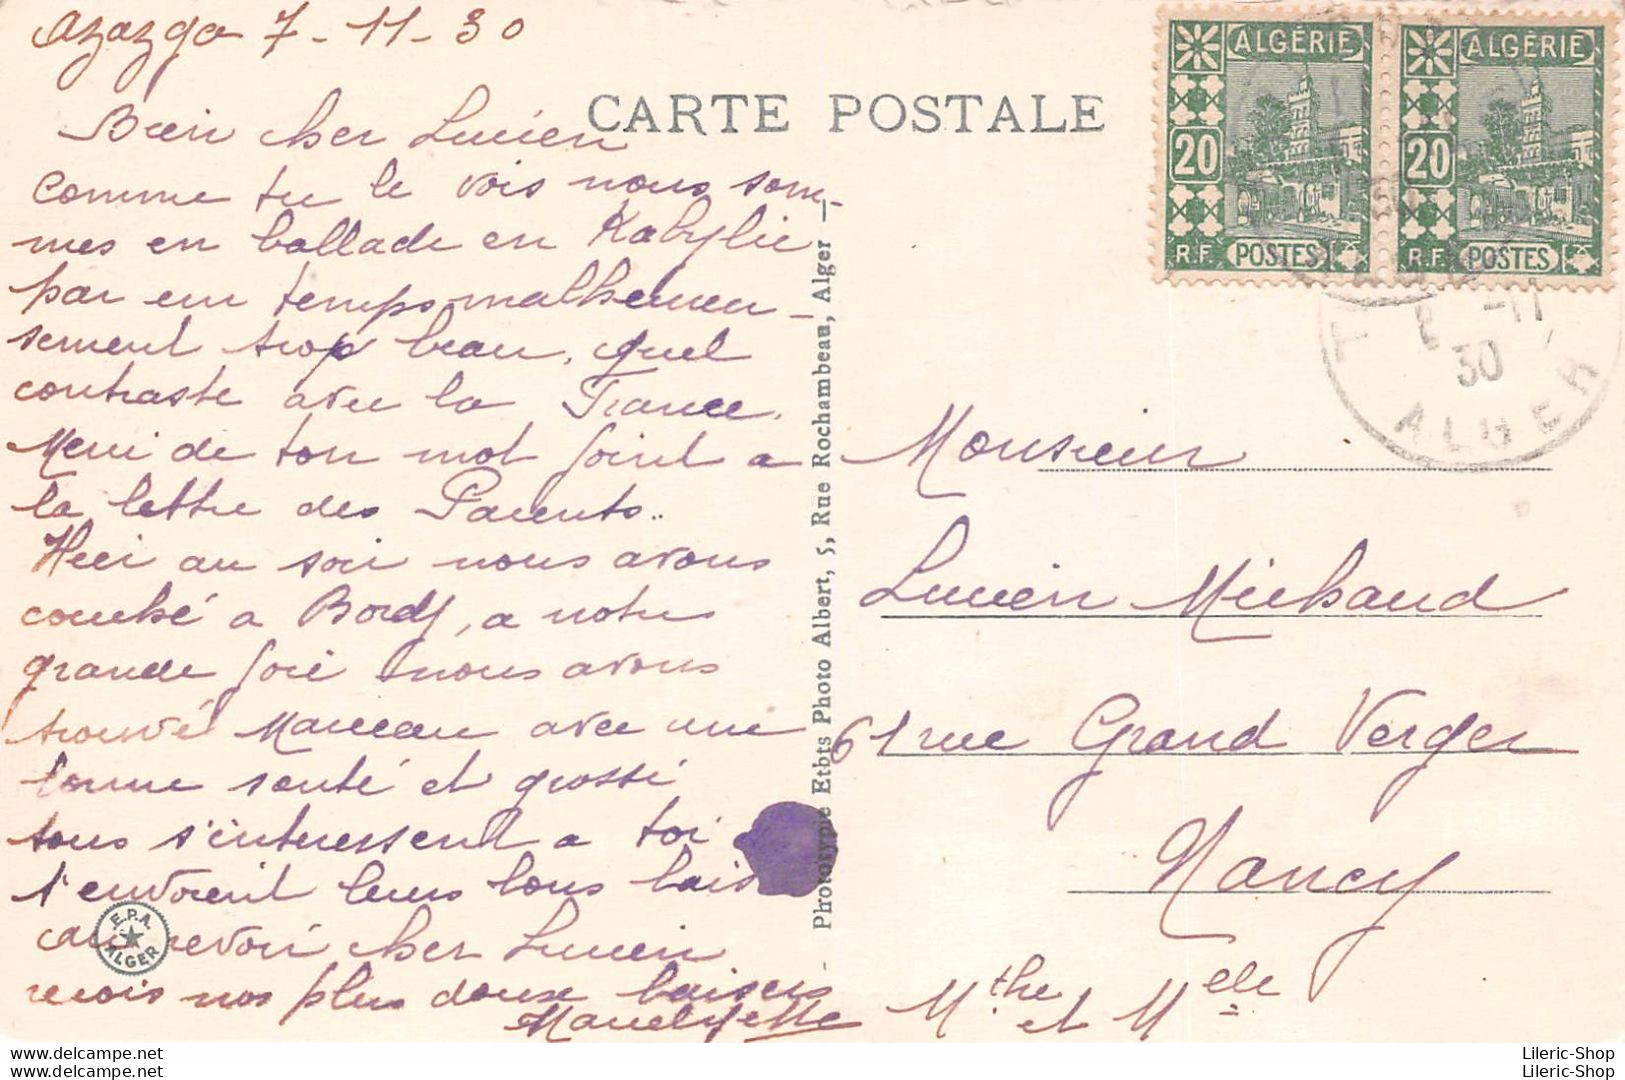 Azazga 7-11-30
CARTE POSTALE
Bien cher Lucien
comme tu le vois nous som-
mes en ballade en Kabylie
par un temps malheureu-
sement trop beau, quel
contraste avec la France.
Merci de ton mot joint a
la lettre des Parents..
Hier au soir nous avons
couché a Bordj, a notre
grande joie nous avons
trouvé Marceau avec une
bonne santé et grossi
tous s'interessent a toi
t'envoient leurs bons bais
au revoir cher Lucien
reçois nos plus doux baisers
E.P.A.
ALGER
Phototypie Etbts Photo Albert, 5, Rue Rochambeau, Alger
ALGÉRIE
20
R.F. POSTES
ALGÉRIE
20
R.F. POSTES
-11
30
ALGER
Monsieur
Lucien Michaud
61 rue Grand Verger
Nancy
Mthe et Melle
delcampe.net
delcampe.net
Lileric-Shop
Lileric-Shop